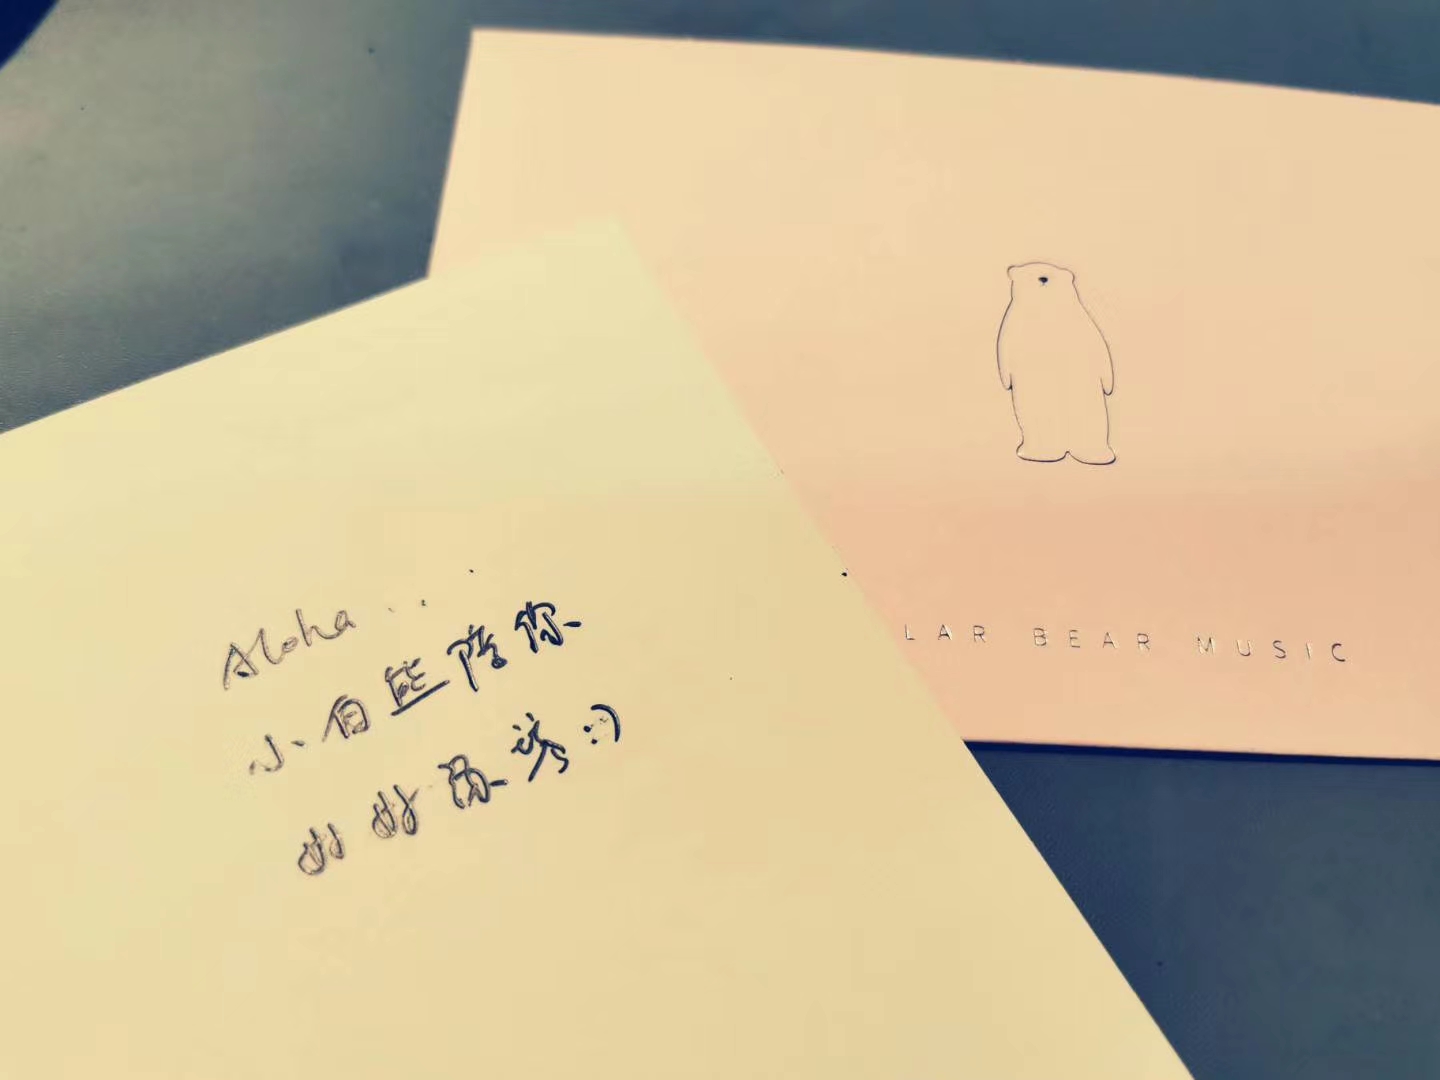 Aloha..
小白熊陪你
好好恋爱 :)
LAR BEAR MUSIC